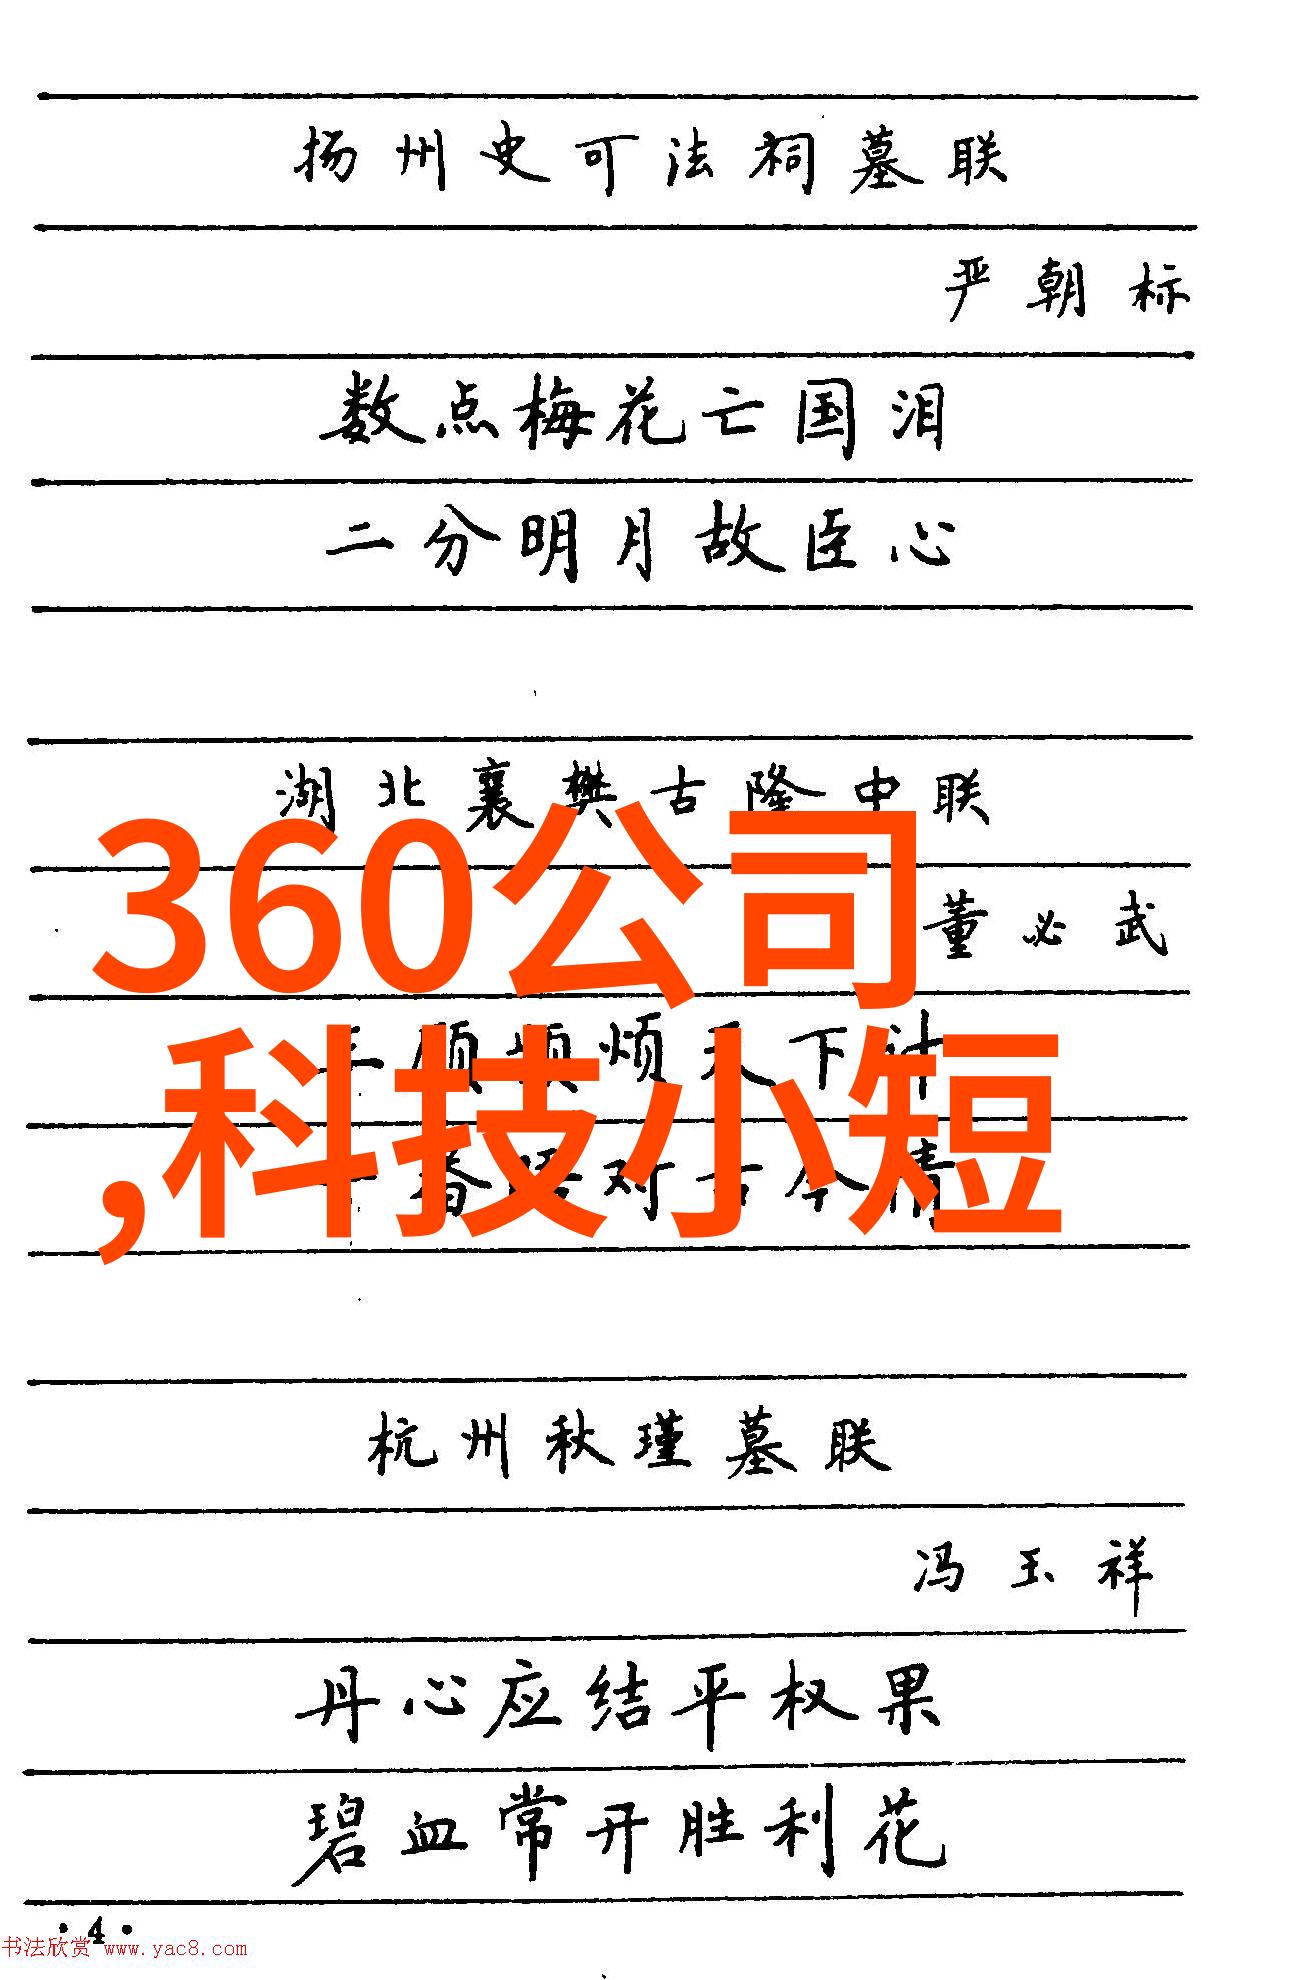 扬州史可法祠墓联
严朝标
数点梅花亡国泪
二分明月故臣心
湖北襄樊古隆中联
360公司
董必武
三顾频烦天下计
,科技小短
对古今情
杭州秋瑾墓联
冯玉祥
丹心应结平权果
碧血常开胜利花
·4·
书法欣赏 www.yac8.com